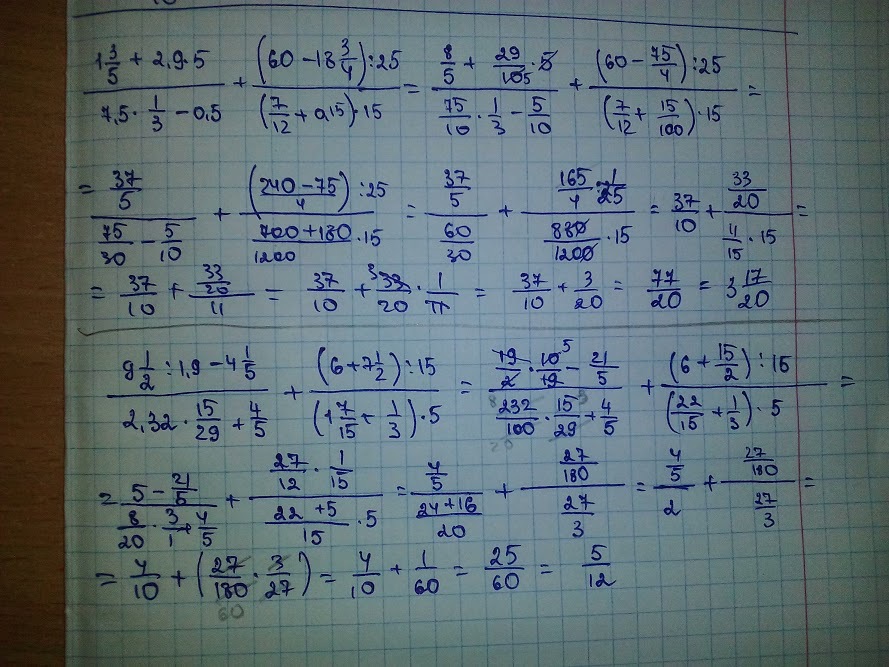 (1 3/5 + 2,9·5)/(7,5·1/3 − 0,5) + ((60 − 18 3/4):25)/((7/12 + 0,15)·15) = (8/5 + 29/105·5)/(75/10·1/3 − 5/10) + ((60 − 75/4):25)/((7/12 + 15/100)·15) =
= (37/5)/(75/30 − 5/10) + (((240 − 75)/4):25)/((700 + 180)/1200·15) = (37/5)/(60/30) + (165/4·1/25)/(880/1200·15) = 37/10 + (33/20)/(11/15·15) =
= 37/10 + (33/20)/11 = 37/10 + 3 33/20·1/11 = 37/10 + 3/20 = 77/20 = 3 17/20
(9 1/2 : 1,9 − 4 1/5)/(2,32·15/29 + 4/5) + ((6 + 7 1/2):15)/((1 7/15 + 1/3)·5) = (19/2·10/19 5 − 21/5)/(232/100·15/29 + 4/5) + ((6 + 15/2):15)/((22/15 + 1/3)·5) =
= (5 − 21/5)/(8/20·3/1 + 4/5) + (27/12·1/15)/((22 + 5)/15·5) = (4/5)/((24 + 16)/20) + (27/180)/(27/3) = (4/5)/2 + (27/180)/(27/3) =
= 4/10 + (27/180·3/27) = 4/10 + 1/60 = 25/60 = 5/12
60